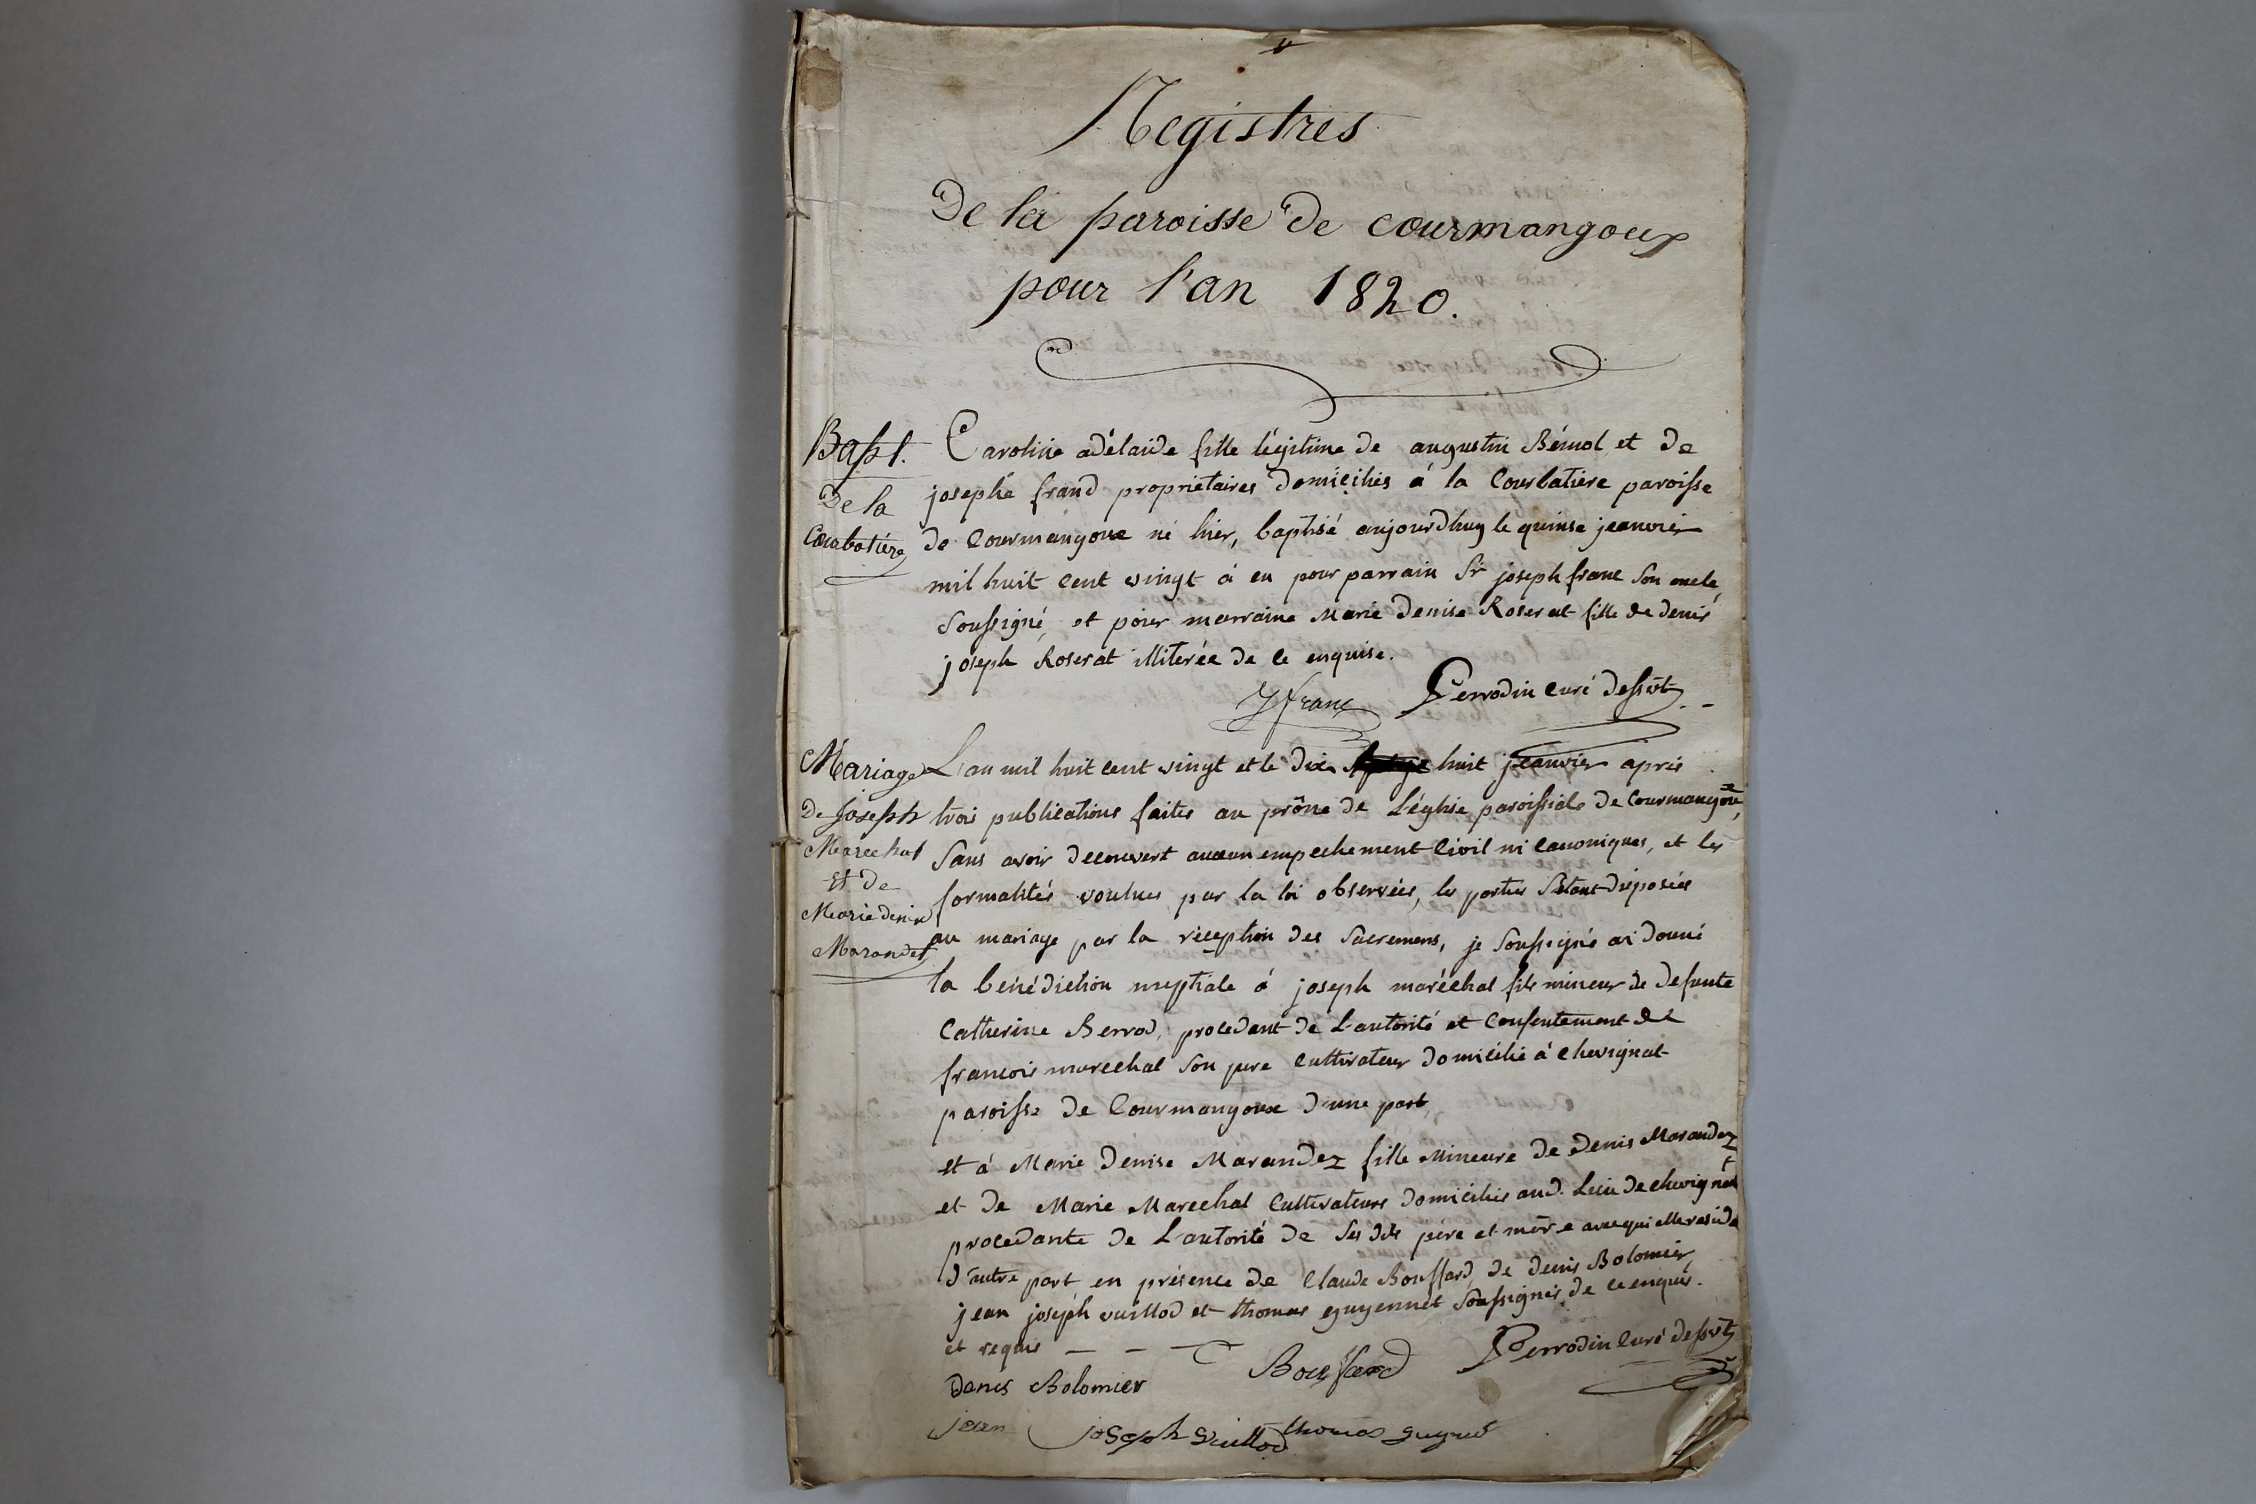 Registres
De la paroisse de courmangoux
pour l'an 1820.
Bapt.
De la
Courbatière
Caroline adélaide fille légitime de augustin Bérrod et de
josephe frand propriétaires domiciliés á la Courbatiere paroisse
de Courmangoux né hier, baptisé aujourdhuy le quinse jeanvier
mil huit cent vingt á eu pour parrain Sr joseph franc son oncle
soussigné, et pour marraine Marie Denise Roserat fille de denis
joseph Roserat illiterée de ce enquise.
J franc Perrodin curé dessert
Mariage
De Joseph
Marechal
et de
Marie denise
Marandet
L'an mil huit cent vingt et le dix huit jeanvier après
trois publications faites au prône de L'église paroissiale de Courmangoux,
sans avoir decouvert aucun empechement Civil ni canoniques, et les
formalités voulues par la loi observées, les parties s'étant disposées
au mariage par la réception des sacremens, je soussigné ai donné
la bénédiction nuptiale á joseph maréchal fils mineur de defunte
Catherine Berrod, procedant de L'autorité et consentement de
francois marechal son pere Cultivateur domicilié á chevignat
paroisse de Courmangoux d'une part,
et á Marie Denise Marandez fille Mineure de Denis Marandez
et de Marie Marechal Cultivateurs domiciliés aud. Lieu de chevignat
procedante de L'autorité de ses dits pére et mére avec qui elle reside
d'autre part en présence de Claude Bouffard, de denis Bolomier,
jean joseph vuillod et thomas eguyennet soussignés de ce enquis.
et requis
Perrodin curé dessert
Bouffard
Denis Bolomier
jean joseph Vuillod thomas